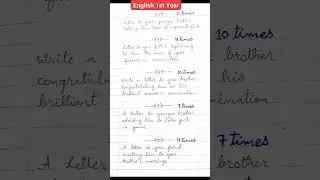 English 1st Year
11 times
Letter to your younger brother
telling him
18 times
Letter to your father explaining
to him the cause of your
failure in examination
20 times
Write a letter to your brother
congratulating him on his
brilliant success in examination
7 times
A letter to younger brother
advising him to take part
in games
4 times
A letter to your friend
inviting him to your
brother's marriage
Write a
congratul
brilliant
A letter
10 times
brother
his
mination
7 times
brother